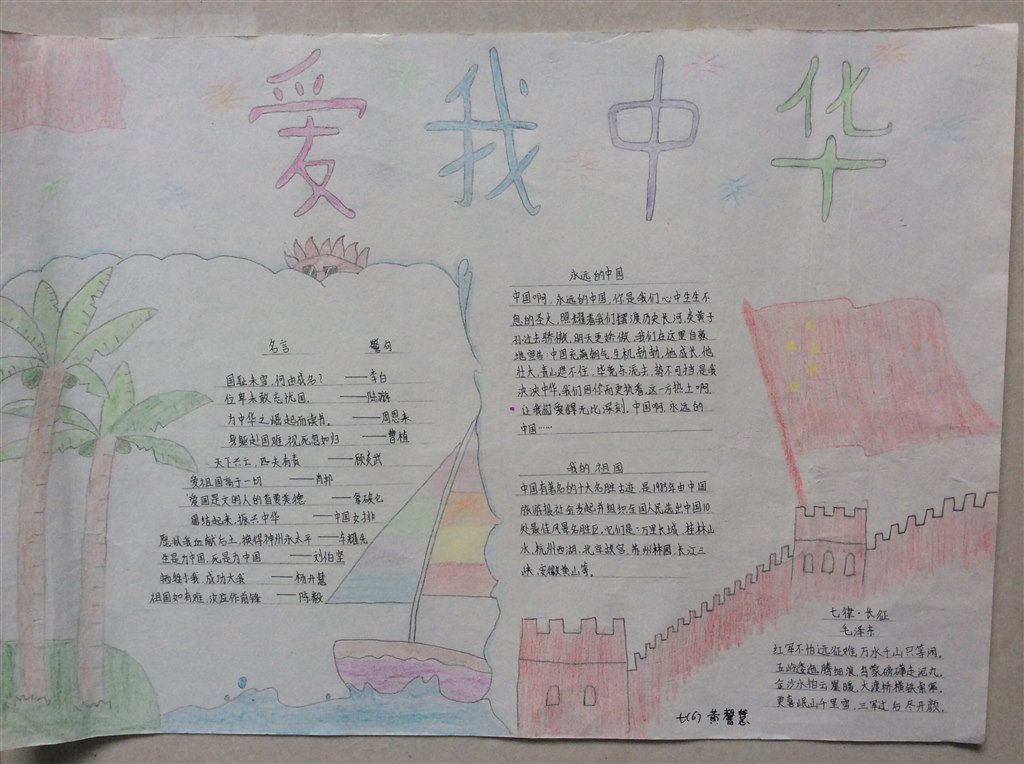 爱我中华
名言 警句
国耻未雪,何由成名? ——李白
位卑未敢忘忧国。 ——陆游
为中华之崛起而读书。 ——周恩来
身躯赴国难,视死忽如归 ——曹植
天下兴亡,匹夫有责 ——顾炎武
爱祖国高于一切 ——肖邦
爱国是文明人的首要美德 ——拿破仑
团结起来,振兴中华 ——中国女排
愿拭我血献后土,换得神州永太平 ——车耀先
生是为中国,死是为中国 ——刘伯坚
牺牲小我,成功大我 ——杨开慧
祖国如有难,汝应作前锋 ——陈毅
永远的中国
中国啊,永远的中国,你是我们心中生生不
息的圣火,照耀着我们摆渡历史长河,炎黄子
孙过去骄傲,明天更骄傲,我们在这里自豪
地宣告:中国充满朝气,生机勃勃,他成长,他
壮大,青山遮不住,毕竟东流去,势不可挡,是我
泱泱中华,我们因你而更执着,这一方热土啊,
让我们爱得无比深刻,中国啊,永远的
中国……
我的祖国
中国有著名的十大名胜古迹,是1985年由中国
旅游报社会发起并组织全国人民选出中国10
处最佳风景名胜区,它们是:万里长城,桂林山
水,杭州西湖,北京故宫,苏州林园,长江三
峡,安徽黄山等。
七律·长征
毛泽东
红军不怕远征难,万水千山只等闲,
五岭逶迤腾细浪,乌蒙磅礴走泥丸,
金沙水拍云崖暖,大渡桥横铁索寒,
更喜岷山千里雪,三军过后尽开颜。
七(6) 黄馨慧